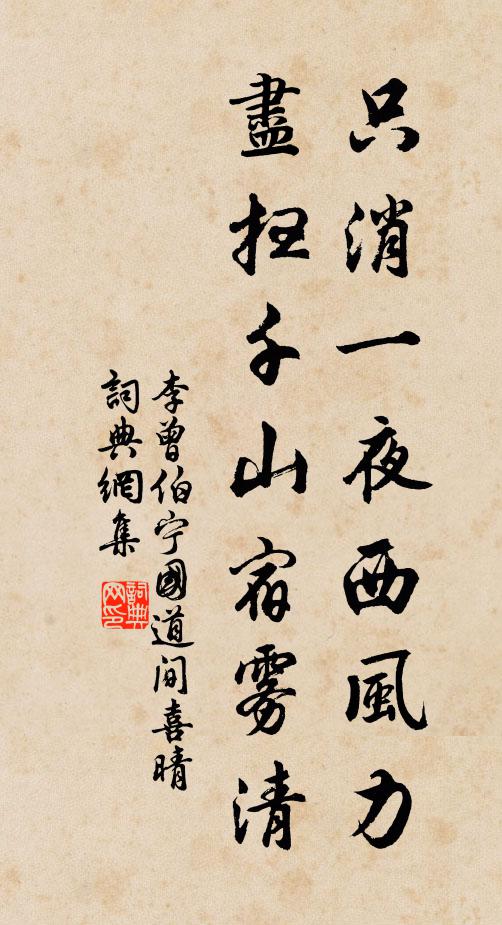 只消一夜西風力
盡扫千山宿雾清
李曾伯宁國道间喜晴
詞典網集
詞典
网印